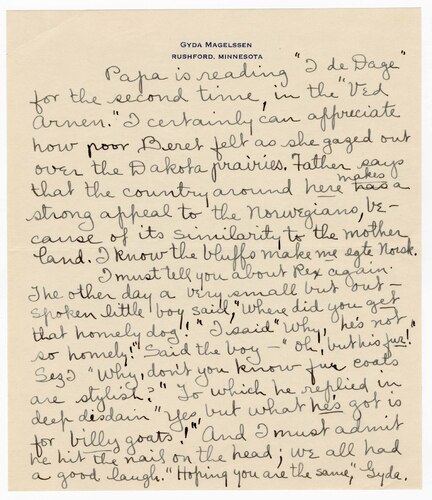 GYDA MAGELSSEN
RUSHFORD, MINNESOTA
Papa is reading "I de Dage"
for the second time, in the "Ved
Arnen." I certainly can appreciate
how poor Beret felt as she gazed out
over the Dakota prairies. Father says
that the country around here has makes a
strong appeal to the Norwegians, be-
cause of its similarity to the mother
land. I know the bluffs make me egte Norsk.
I must tell you about Rex again.
The other day a very small but out-
spoken little boy said, "Where did you get
that homely dog!" "I said "Why, he's not
so homely!" Said the boy - "Oh, but his fur!"
Sez I "Why, don't you know fur coats
are stylish?" To which he replied in
deep disdain "Yes, but what he's got is
for billy goats!" And I must admit
he hit the nail on the head; we all had
a good laugh. "Hoping you are the same," Gyda.